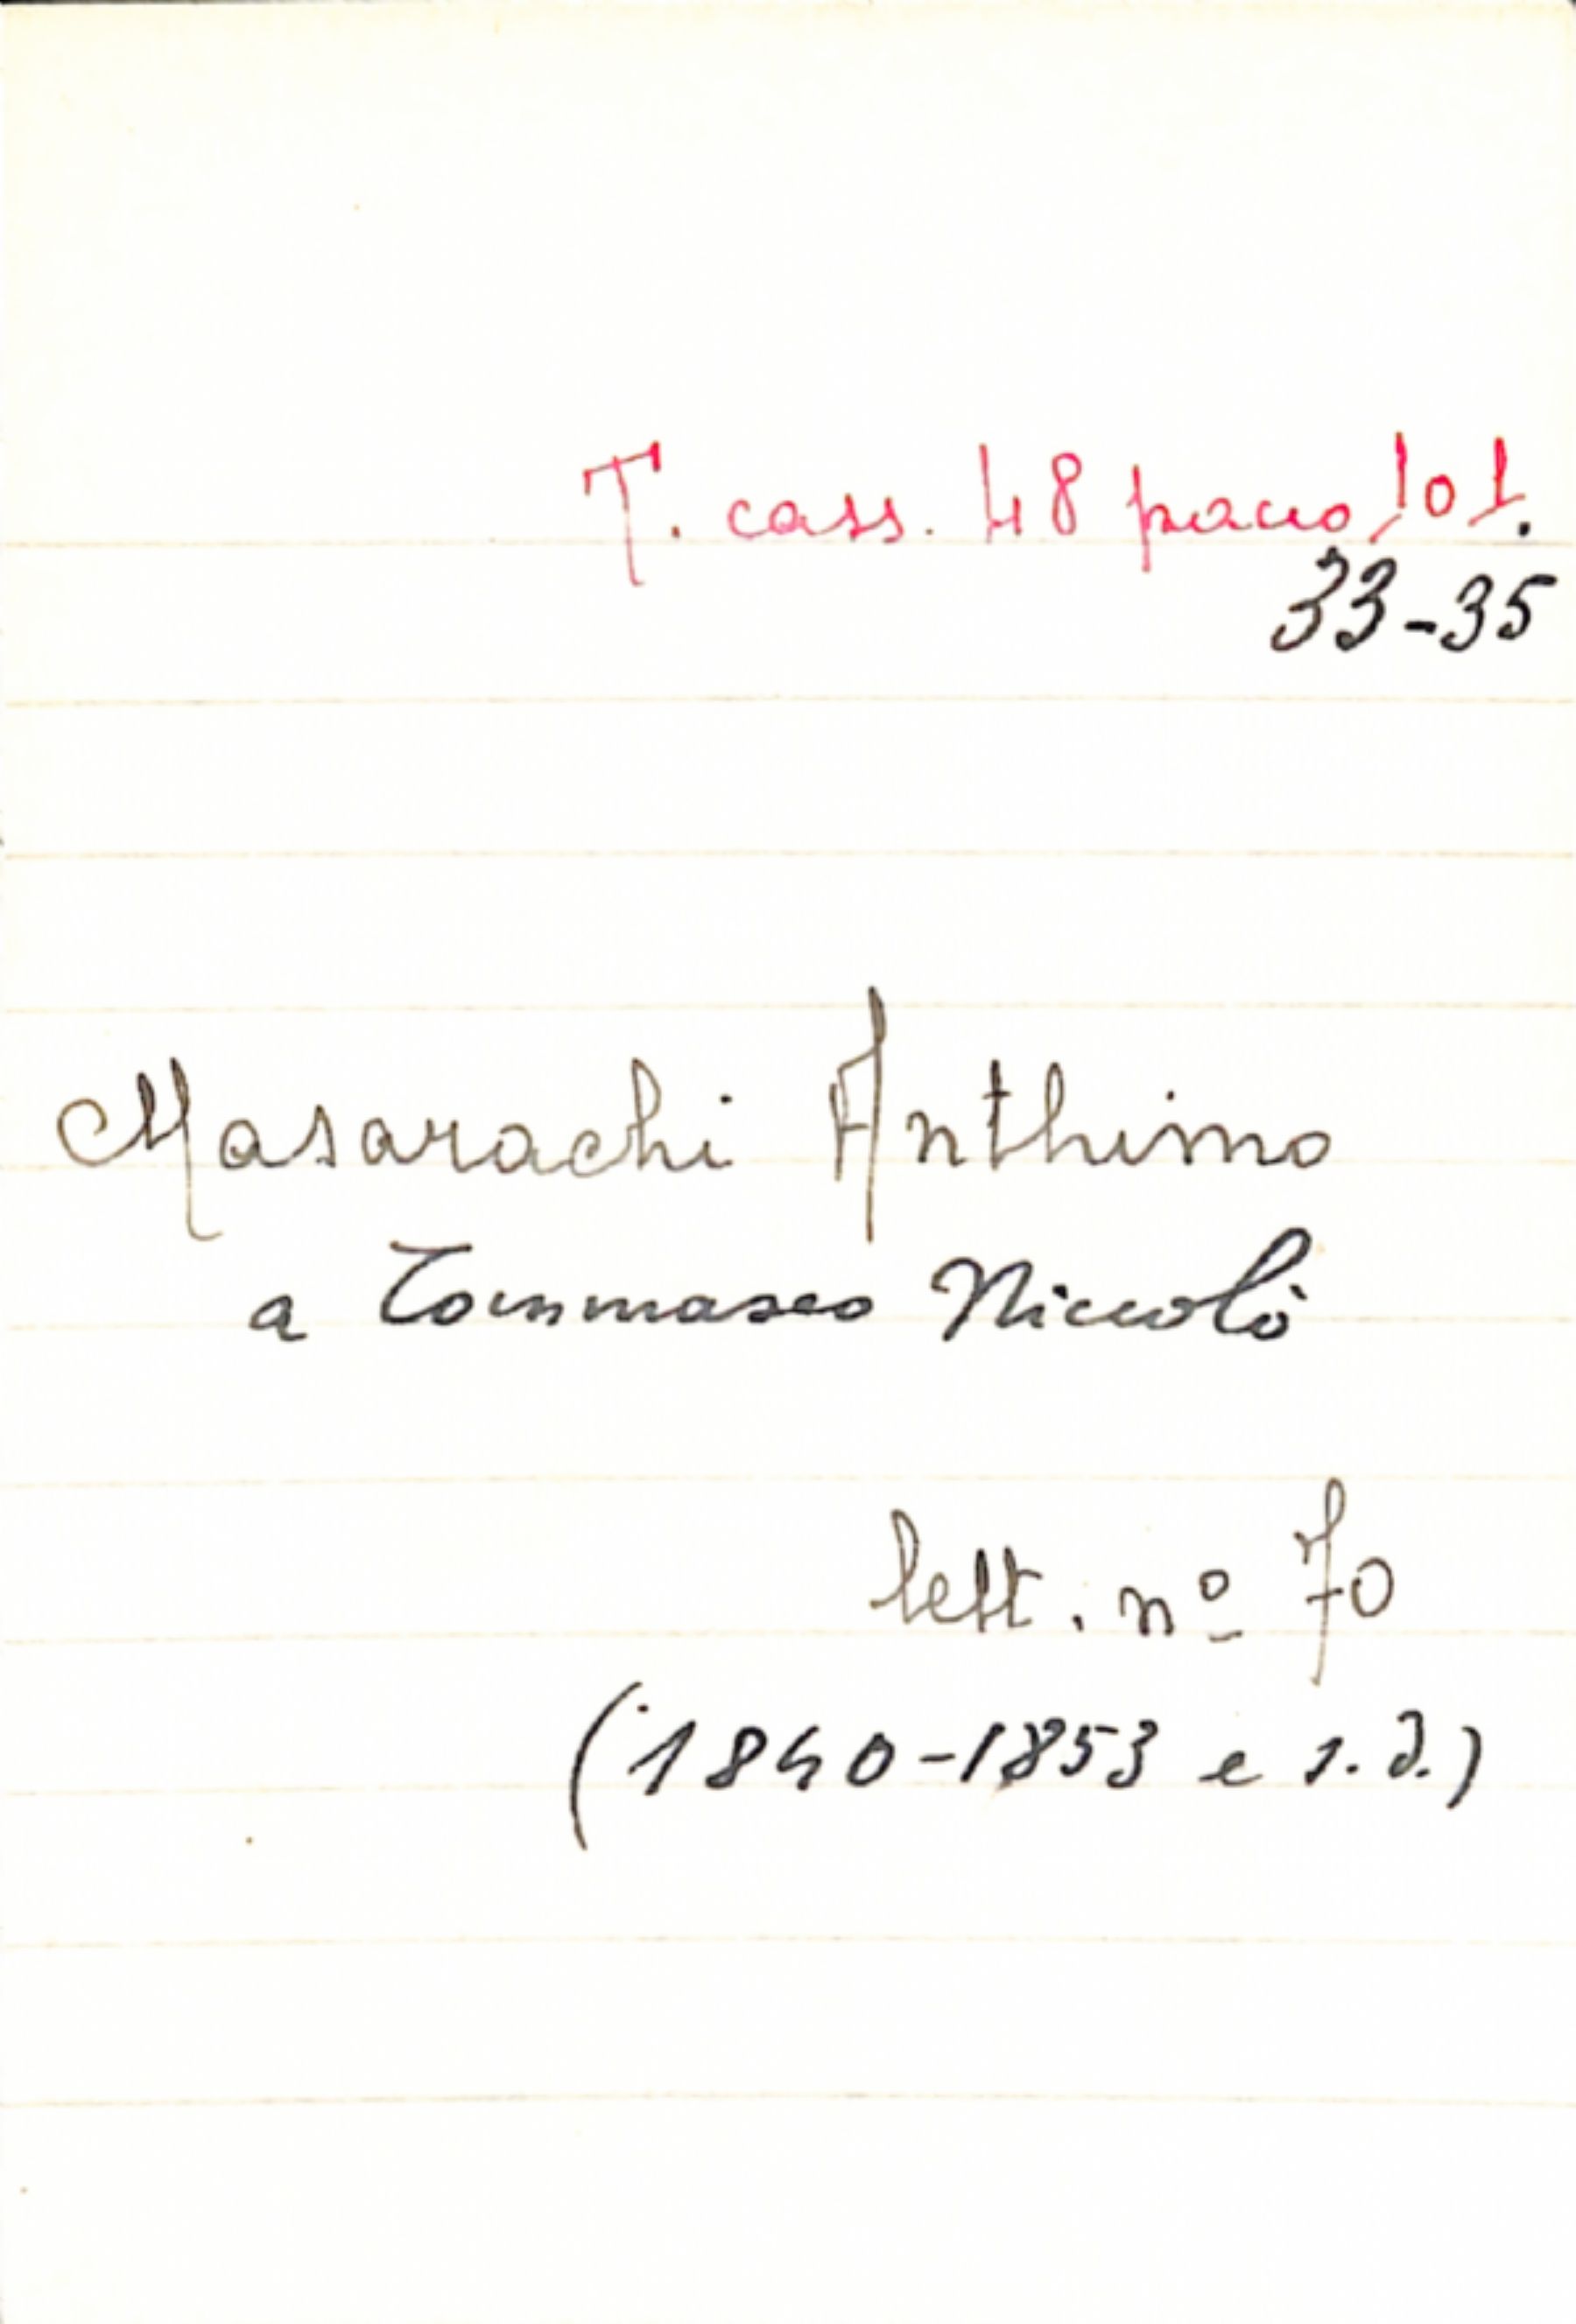 T. cass. 48 pacco 101.
33-35
Masarachi Anthimo
a Tommaseo Niccolò
lett. nº 70
(1840-1853 e s.d.)